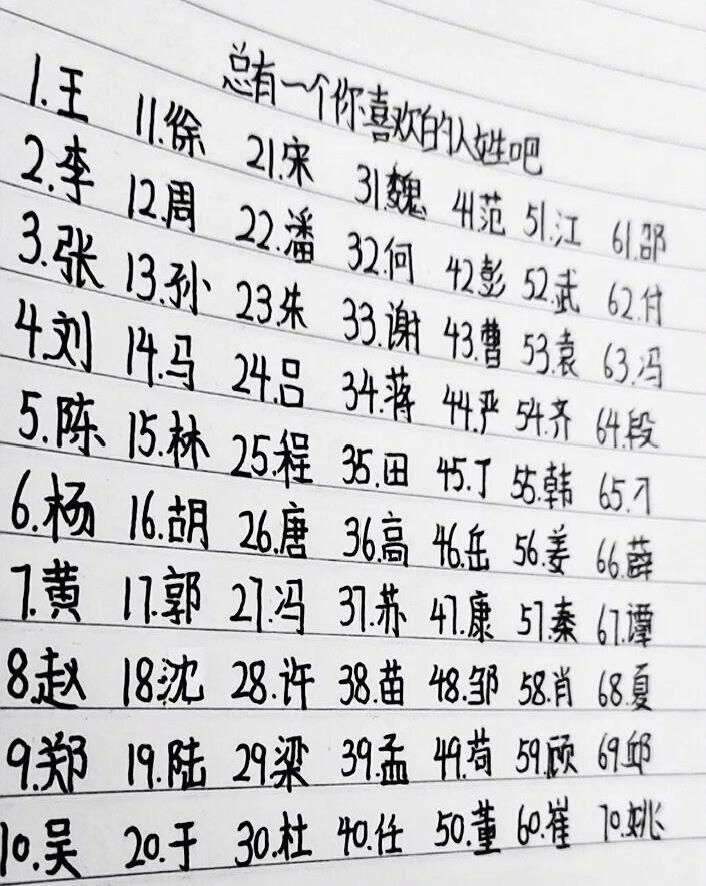 总有一个你喜欢的人姓吧
1.王 11.徐 21.宋 31.魏 41.范 51.江 61.邵
2.李 12.周 22.潘 32.何 42.彭 52.武 62.付
3.张 13.孙 23.朱 33.谢 43.曹 53.袁 63.冯
4.刘 14.马 24.吕 34.蒋 44.严 54.齐 64.段
5.陈 15.林 25.程 35.田 45.丁 55.韩 65.刁
6.杨 16.胡 26.唐 36.高 46.岳 56.姜 66.薛
7.黄 17.郭 27.冯 37.苏 47.康 57.秦 67.谭
8.赵 18.沈 28.许 38.苗 48.邹 58.肖 68.夏
9.郑 19.陆 29.梁 39.孟 49.苟 59.顾 69.邱
10.吴 20.于 30.杜 40.任 50.董 60.崔 70.姚